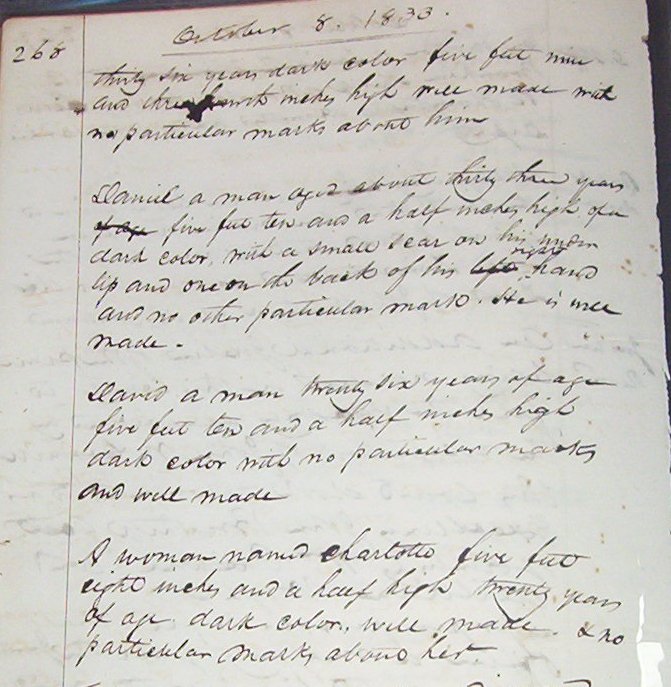 268
October 8. 1833.
thirty six years dark color five feet nine
and three fourth inches high well made with
no particular marks about him
Daniel a man aged about thirty three years
of age five feet ten and a half inches high of a
dark color, with a small scar on his under
right
lip and one on the back of his left hand
and no other particular mark. He is well
made -
David a man twenty six years of age
five feet ten and a half inches high
dark color with no particular marks
and well made
A woman named Charlotte five feet
eight inches and a half high twenty years
of age dark color, well made. & no
particular marks about her.